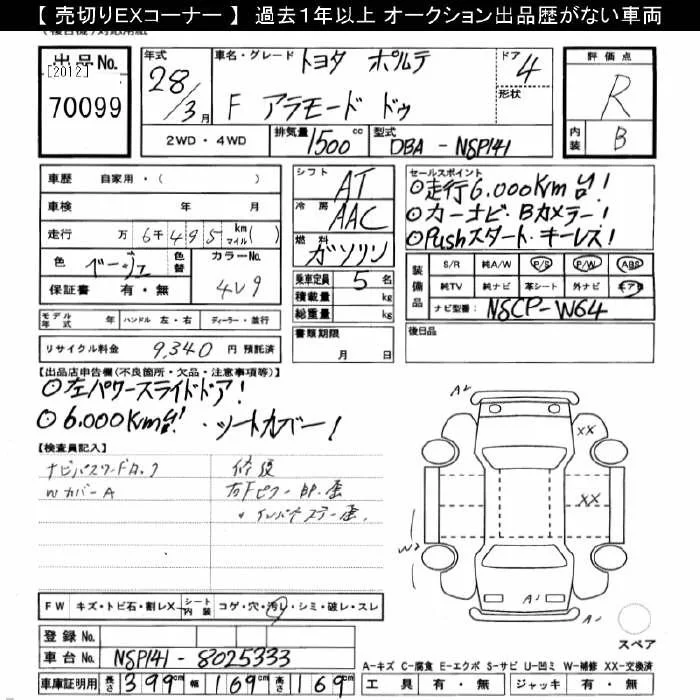 【 売切りEXコーナー 】 過去1年以上 オークション出品歴がない車両
出品No.
[2012]
70099
年式 28/3月
車名・グレード トヨタ ポルテ
F アラモード ドゥ
ドア 4
形状
2WD・4WD
排気量 1500 cc
型式 DBA - NSP141
評価点
R
内装 B
車歴 自家用・( )
車検 年 月
走行 万 6千495 km マイル( )
色 ベージュ 色替 カラーNo. 4V9
保証書 有・無
モデル年式 年 ハンドル 左・右 ディーラー・並行
リサイクル料金 9,340 円 預託済
シフト AT
冷房 AAC
燃料 ガソリン
乗車定員 5 名
積載量 kg
総重量 kg
書類期限
月 日
セールスポイント
◎走行6.000Km台!
◎カーナビ・Bカメラー!
◎Pushスタート・キーレス!
装備品 S/R 純A/W P/S P/W ABS
純TV 純ナビ 革シート 外ナビ エアB
ナビ型番: NSCP-W64
後日品
【出品店申告欄(不良箇所・欠品・注意事項等)】
◎左パワースライドドア!
◎6.000Km台! ・シートカバー!
【検査員記入】
ナビパスワードロック
Wカバー A
修復
右Fピラー
A2
XX
XX
W2
A1
A1
スペア
FW キズ・トビ石・割レX シート内装 コゲ・穴・汚レ・シミ・破レ・スレ
登録No.
車台No. NSP141 - 8025333
車庫証明用 長さ 399cm 幅 169cm 高さ 169cm
A-キズ C-腐食 E-エクボ S-サビ U-凹ミ W-補修 XX-交換済
工具 有・無 ジャッキ 有・無